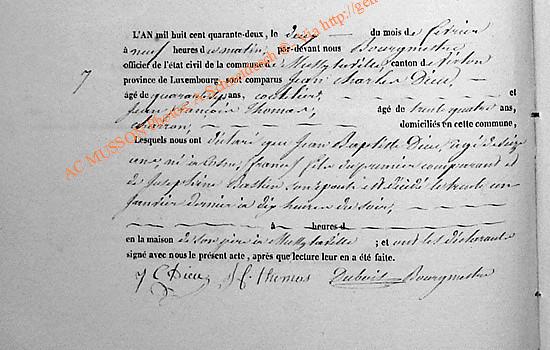 L'AN mil huit cent quarante-deux, le deux du mois de février
à neuf heures du matin, par-devant nous Bourgmestre
officier de l'état civil de la commune de Mussy la ville, canton de Virton
province de Luxembourg, sont comparus Jean Charles Dieu,
7
âgé de quarante sept ans, et
Jean François Thomas, âgé de trente quatre ans,
charron, domiciliés en cette commune,
Lesquels nous ont déclaré que Jean Baptiste Dieu, âgé de
ans né à (france) fils du premier comparant et
de Joséphine Bastin son épouse est décédé le trente un
janvier dernier à dix heures du soir,
à heures d
en la maison de son père à Mussy la ville ; et ont les déclarants
signé avec nous le présent acte, après que lecture leur en a été faite.
J C Dieu J F Thomas Dubois Bourgmestre
AC MUSSON